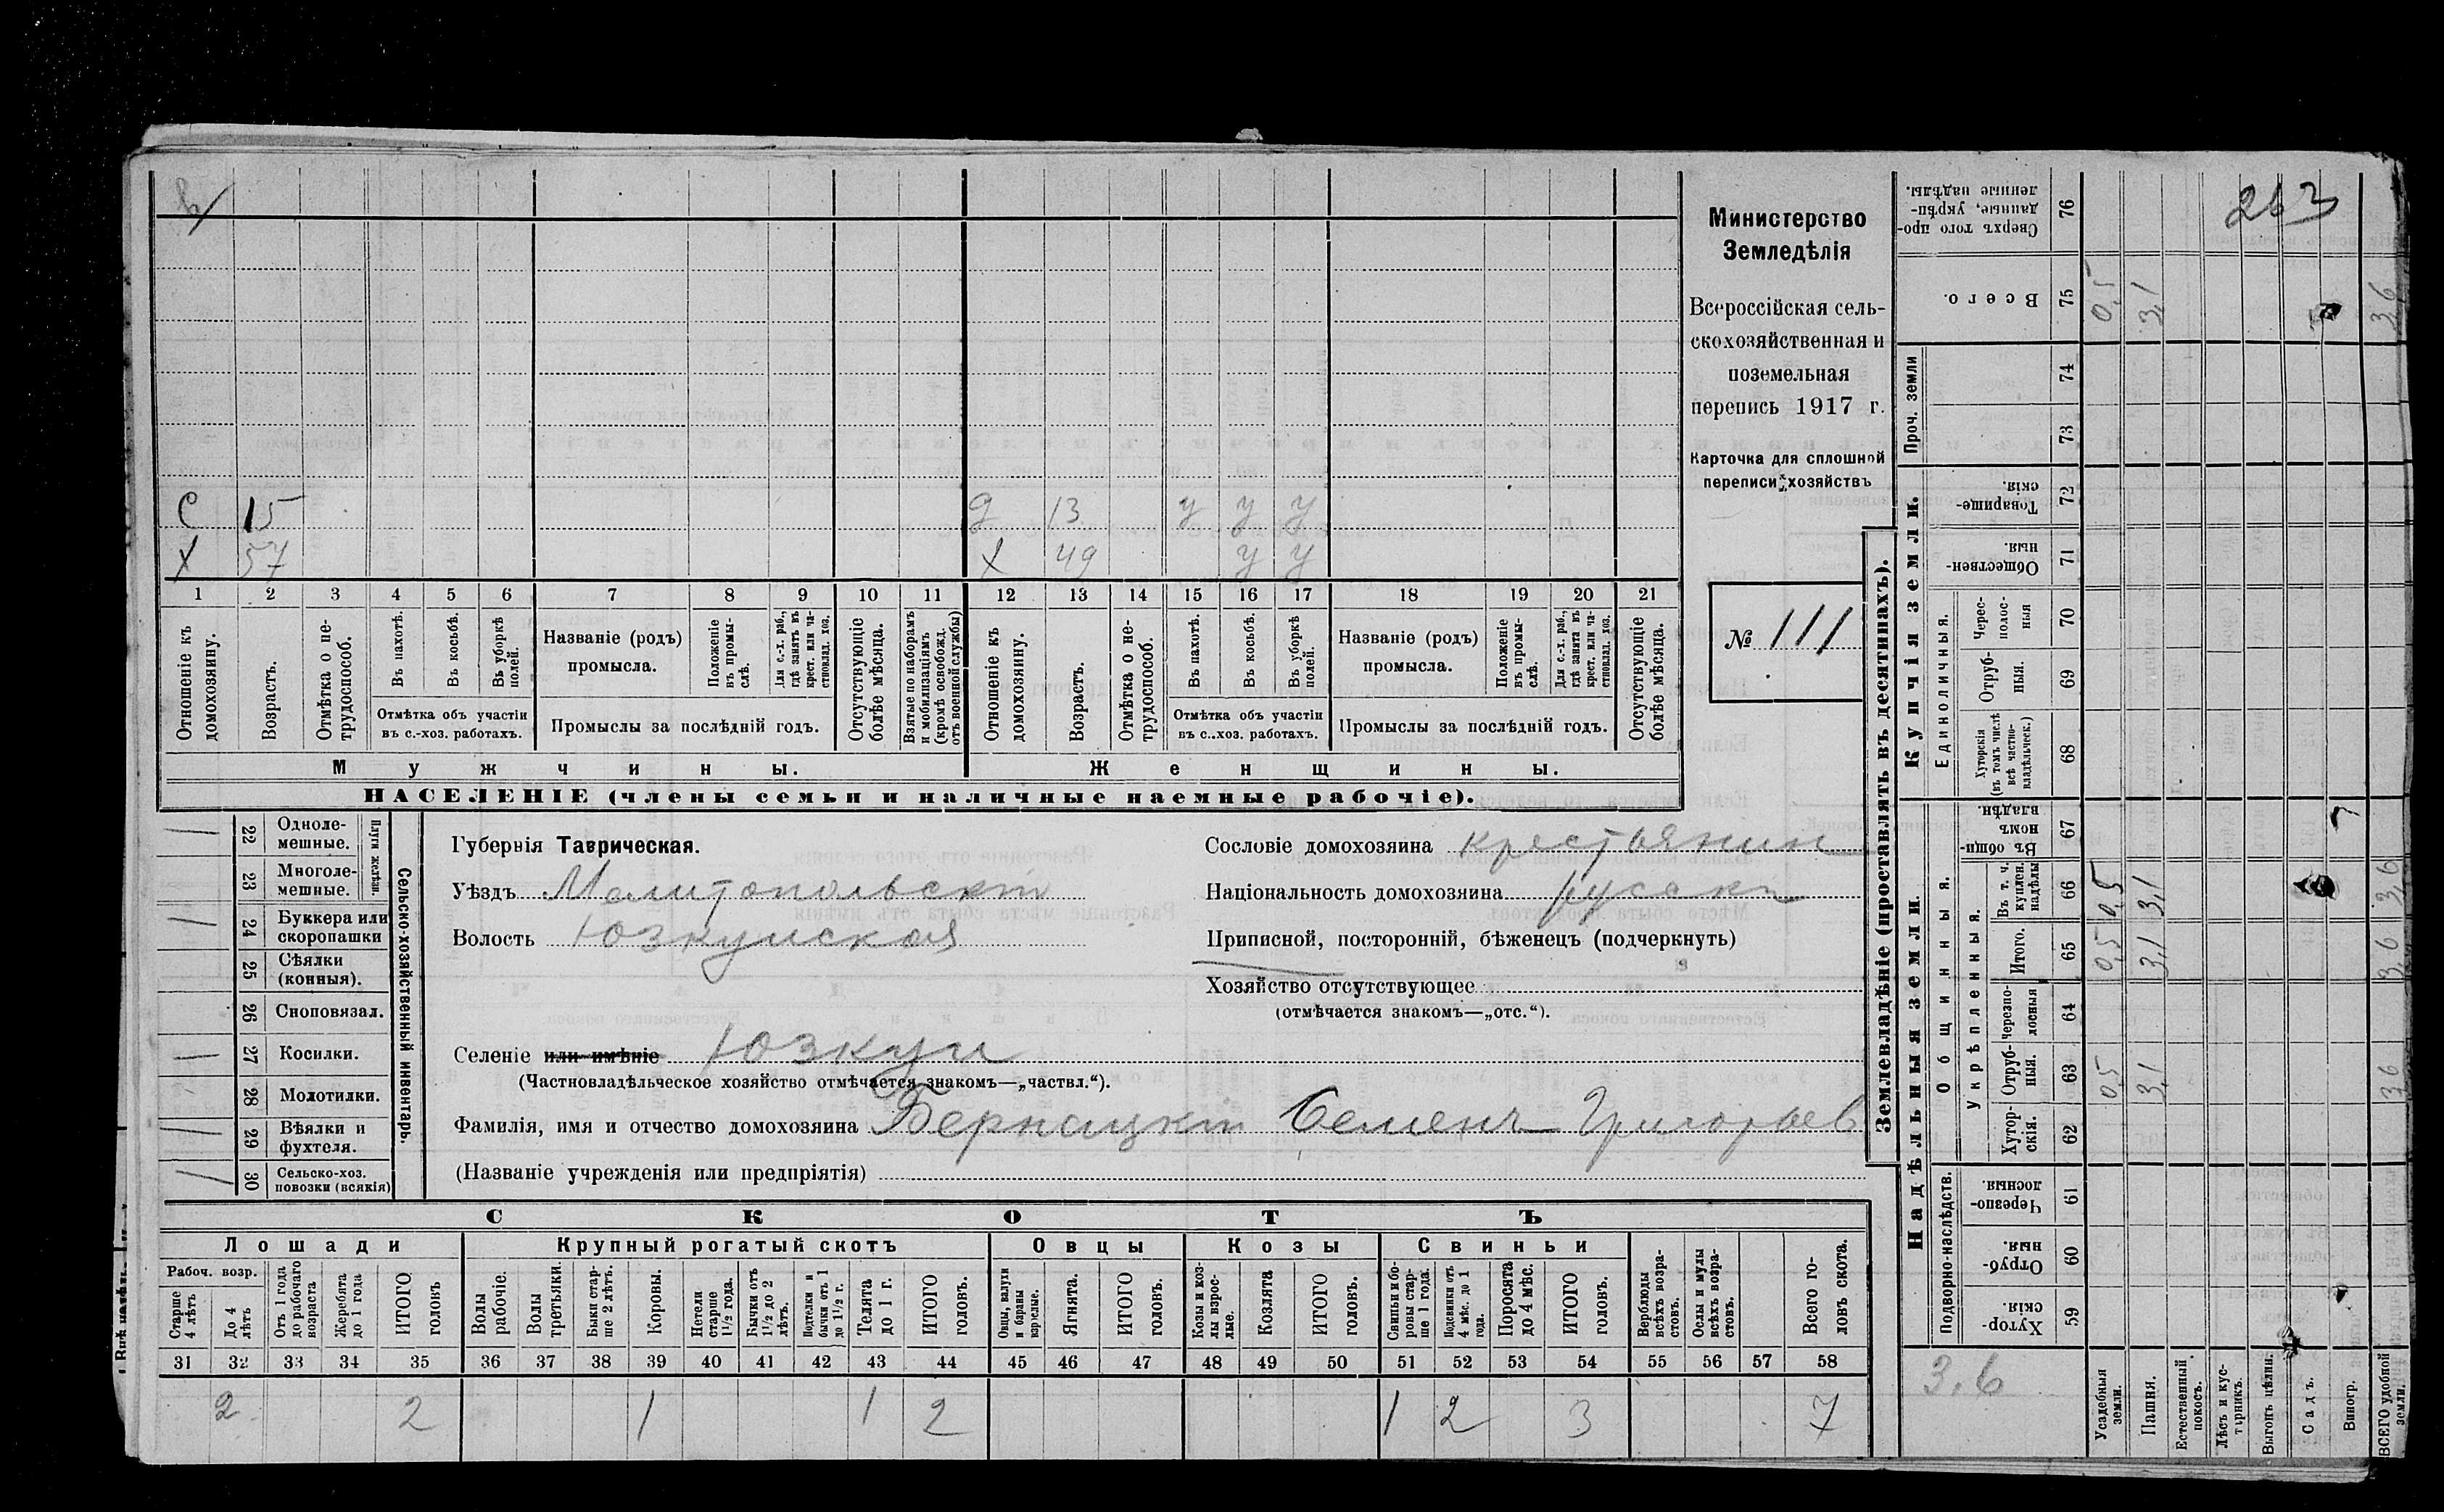 263
С 15 д 13 у у у
х 57 х 49 у у
1 2 3 4 5 6 7 8 9 10 11 12 13 14 15 16 17 18 19 20 21
Отношеніе къ домохозяину.
Возрастъ.
Отмѣтка о не-трудоспособ.
Въ пахотѣ.
Въ косьбѣ.
Въ уборкѣ полей.
Отмѣтка объ участіи
въ с.-хоз. работахъ.
Названіе (родъ)
промысла.
Положеніе въ промы-слѣ.
Для с.-х. раб., гдѣ занятъ въ крест. или ча-стновлад. хоз.
Промыслы за послѣдній годъ.
Отсутствующіе болѣе мѣсяца.
Взятые по наборамъ и мобилизаціямъ (кромѣ освобожд. отъ военной службы)
Отношеніе къ домохозяину.
Возрастъ.
Отмѣтка о не-трудоспособ.
Въ пахотѣ.
Въ косьбѣ.
Въ уборкѣ полей.
Отмѣтка объ участіи
въ с..хоз. работахъ.
Названіе (родъ)
промысла.
Положеніе въ промы-слѣ.
Для с.-х. раб., гдѣ занята въ крест. или ча-стновлад. хоз.
Промыслы за послѣдній годъ.
Отсутствующіе болѣе мѣсяца.
Мужчины. Женщины.
НАСЕЛЕНІЕ (члены семьи и наличные наемные рабочіе).
Министерство
Земледѣлія
Всероссійская сель-
скохозяйственная и
поземельная
перепись 1917 г.
Карточка для сплошной
переписи хозяйствъ
№ 111
Сельско-хозяйственный инвентарь
Плуги желѣзн.
/ 22 Одноле-мешные.
23 Многоле-мешные.
/ 24 Буккера или скоропашки
25 Сѣялки (конныя).
26 Сноповязал.
/ 27 Косилки.
28 Молотилки.
/ 29 Вѣялки и фухтеля.
/ 30 Сельско-хоз. повозки (всякія)
Губернія Таврическая.
Уѣздъ Мелитопольскій
Волость Юзкуйская
Сословіе домохозяина крестьянин
Національность домохозяина русакъ
Приписной, посторонній, бѣженецъ (подчеркнуть)
Хозяйство отсутствующее
(отмѣчается знакомъ—„отс.“).
Селеніе или имѣніе Юзкуи
(Частновладѣльческое хозяйство отмѣчается знакомъ—„частвл.“).
Фамилія, имя и отчество домохозяина Бернацкій Семенъ Григорьев
(Названіе учрежденія или предпріятія)
СКОТЪ
Лошади Крупный рогатый скотъ Овцы Козы Свиньи
Рабоч. возр.
Старше 4 лѣтъ
До 4 лѣтъ
Отъ 1 года до рабочаго возраста
Жеребята до 1 года
ИТОГО головъ
Волы рабочіе.
Волы третьяки.
Быки стар-ше 2 лѣтъ.
Коровы.
Нетели старше 1 1/2 года.
Бычки отъ 1 1/2 до 2 лѣтъ.
Подтелки и бычки отъ 1 до 1 1/2 г.
Телята до 1 г.
ИТОГО головъ.
Овцы, валухи и бараны взрослые.
Ягнята.
ИТОГО головъ.
Козы и коз-лы взрос-лые.
Козлята
ИТОГО головъ.
Свиньи и бо-ровы стар-ше 1 года.
Подсвинки отъ 4 мѣс. до 1 года.
Поросята до 4 мѣс.
ИТОГО головъ.
Верблюды всѣхъ возра-стовъ.
Ослы и мулы всѣхъ возра-стовъ.
Всего го-ловъ скота.
31 32 33 34 35 36 37 38 39 40 41 42 43 44 45 46 47 48 49 50 51 52 53 54 55 56 57 58
2 2 1 1 2 1 2 3 7
Землевладѣніе (проставлять въ десятинахъ).
Надѣльныя земли. Купчія земли. Проч. земли
Подворно-наслѣдств.
Общинныя.
Укрѣпленныя.
Единоличныя.
Хутор-скія. 59
Отруб-ныя. 60
Черезпо-лосныя. 61
Хутор-скія. 62
Отруб-ныя. 63 0,5 3,1 3,6
Черезпо-лосныя 64
Итого. 65 0,5 3,1 3,6
Въ т. ч. куплен. надѣлы 66 0,5 3,1 3,6
Въ общи-номъ владѣн. 67
Хуторскія (въ томъ числѣ всѣ частно-владѣльческ.) 68
Отруб-ныя. 69
Черес-полос-ныя 70
Обществен-ныя. 71
Товарище-скія. 72
73
74
Всего. 75 0,5 3,1 3,6
Сверхъ того про-данные, укрѣп-ленные надѣлы. 76
3.6
Усадебныя земли.
Пашня.
Естественный покосъ.
Лѣсъ и кус-тарникъ.
Выгонъ цѣлин.
Садъ.
Виногр.
ВСЕГО удобной земли.